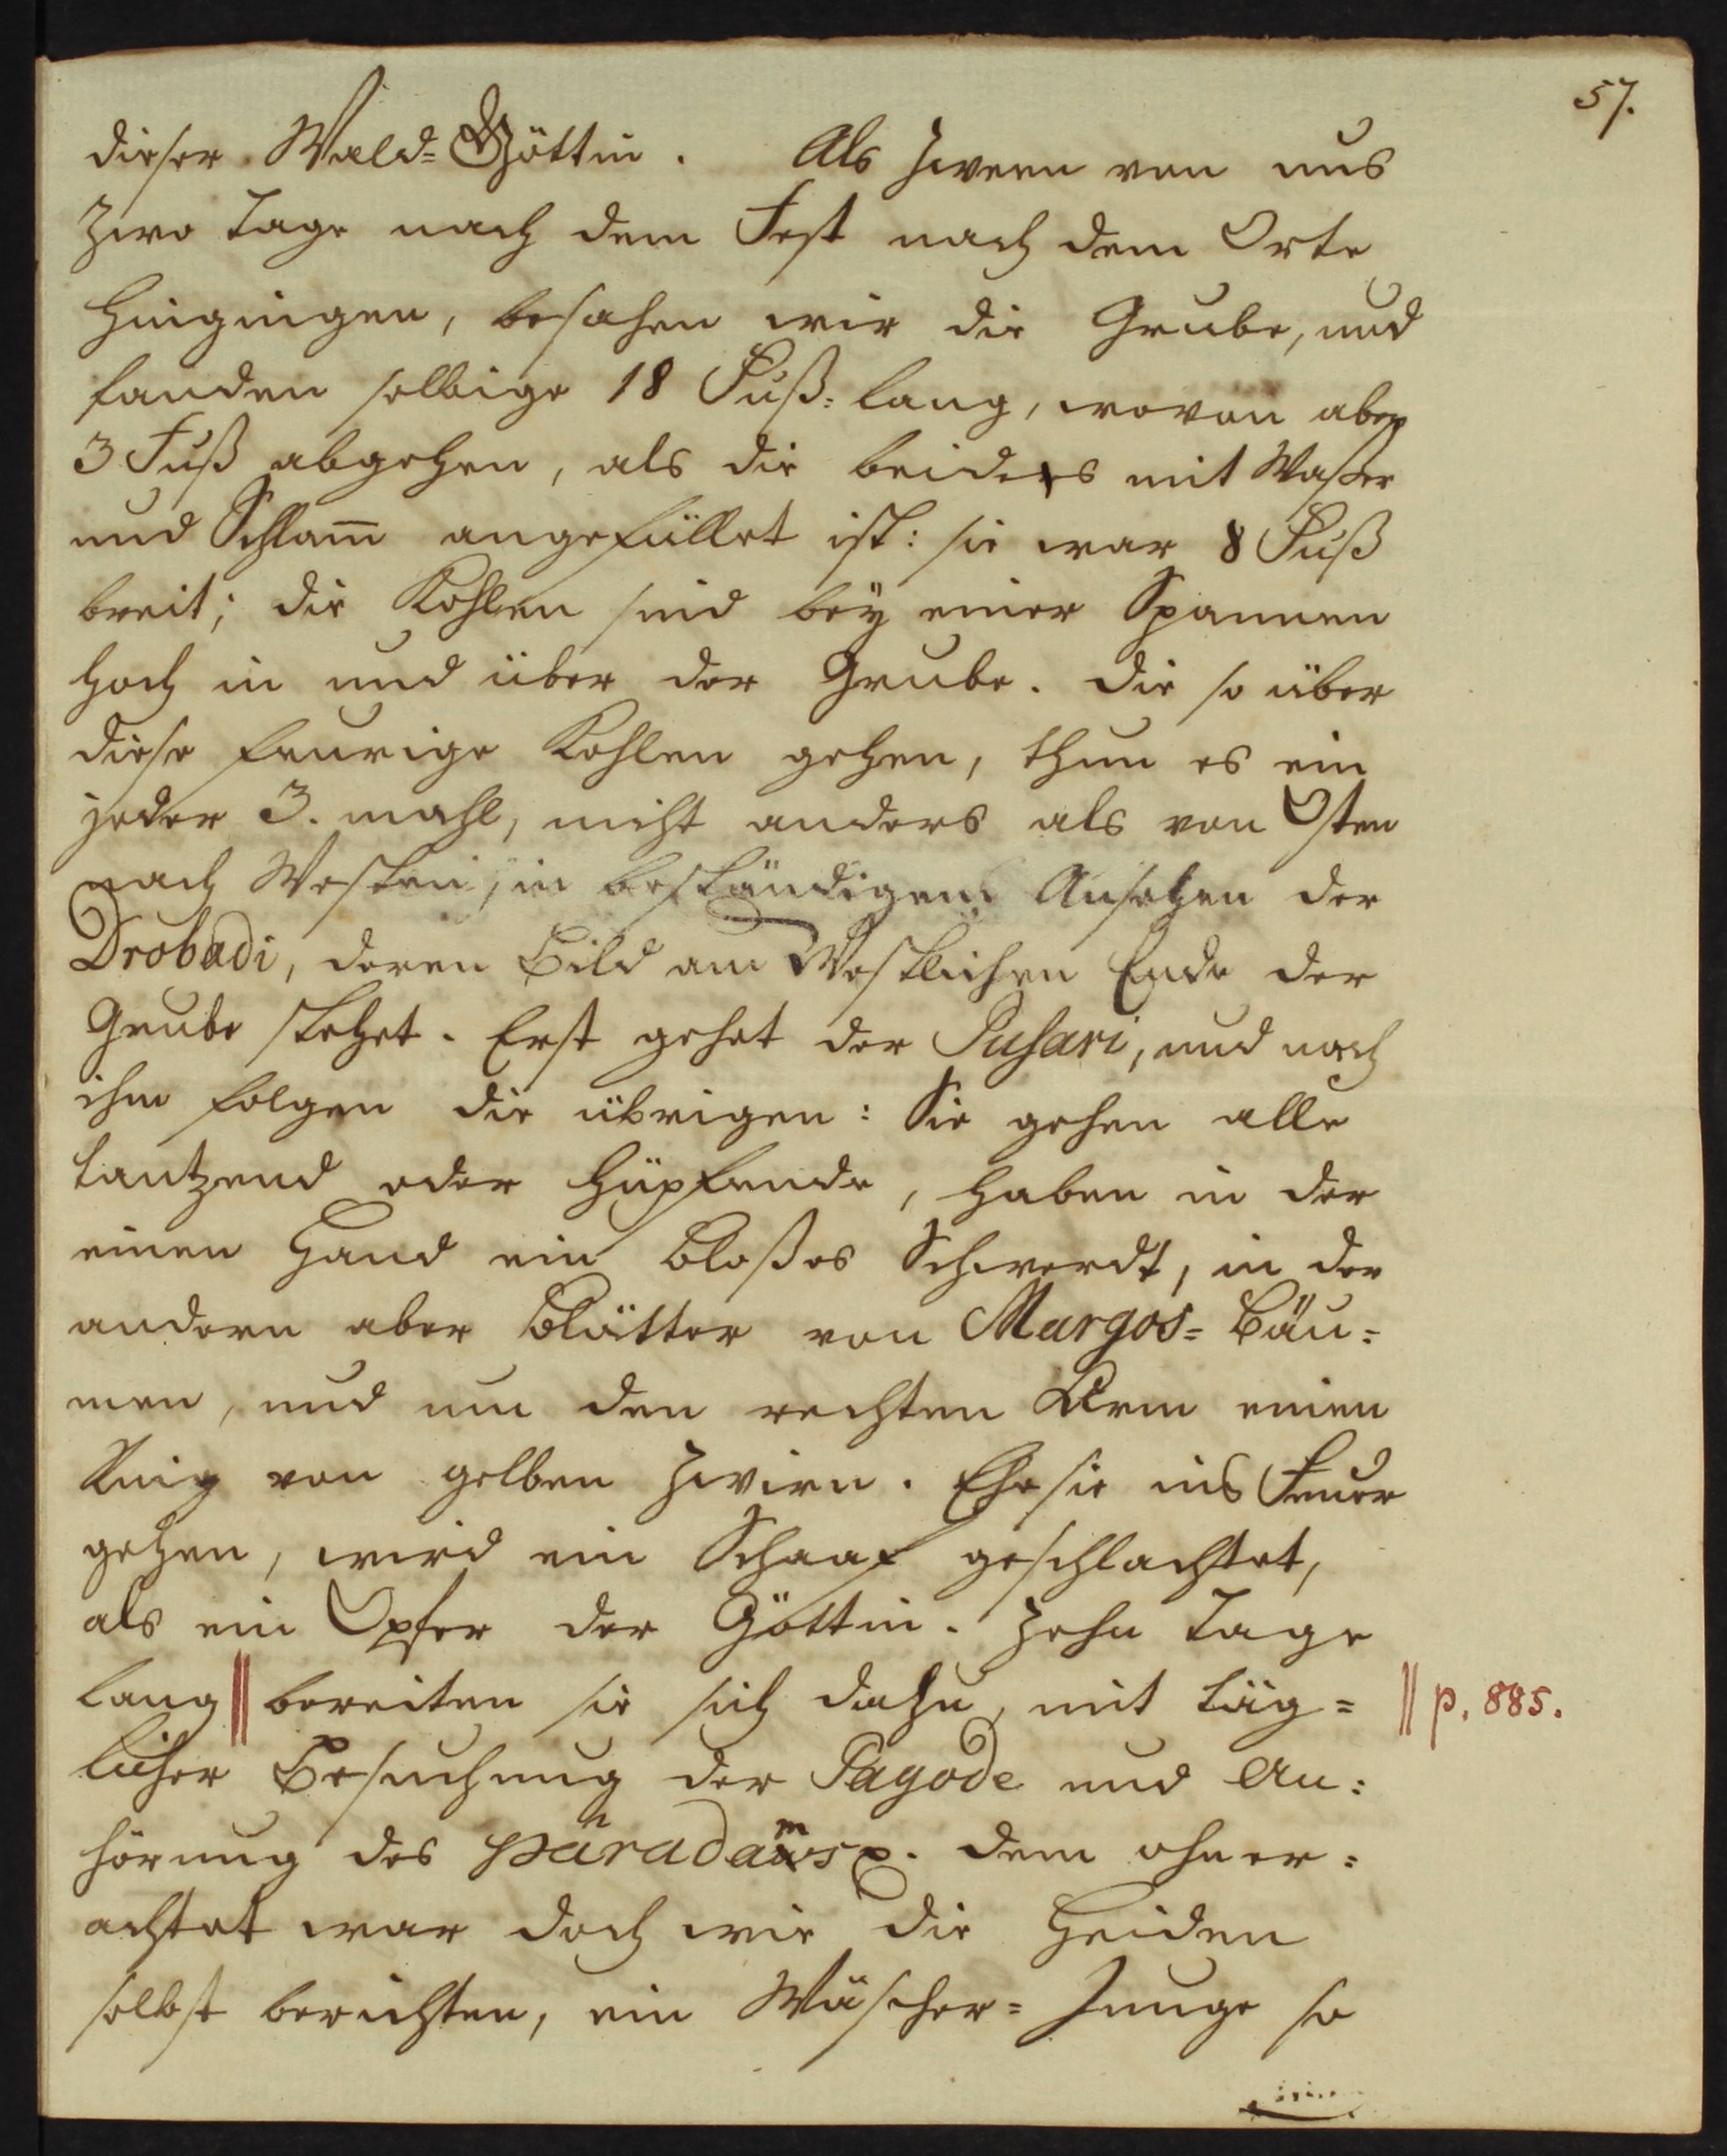 57.
dieser Wald-Göttin. Als zween von uns
zwo Tage nach dem Fest nach dem Orte
hingingen, besahen wir die Grube, und
fanden selbige 18 Fuß lang, wovon aber
3 Fuß abgehen, als die beides mit Waßer
und Schlam̄ angefüllet ist: sie war 8 Fuß
breit; die Kohlen sind bey einer Spannen
hoch in und über der Grube. Die so über
diese feurige Kohlen gehen, thun es ein
jeder 3. mahl, nicht anders als von Osten
nach Westen, in beständigem Ansehen der
Drobadi, deren Bild am Westlichen Ende der
Grube stehet. Erst gehet der Pusari, und nach
ihm folgen die übrigen: Sie gehen alle
tantzend oder hüpfende, haben in der
einen Hand ein bloßes Schwerdt, in der
andern aber Blätter von Margos-Bäu=
men, und um den rechten Arm einen
Ring von gelben Zwirn. Ehe sie ins Feuer
gehen, wird ein Schaaf geschlachtet,
als ein Opfer der Göttin. Zehn Tage
lang || bereiten sie sich dazu, mit täg= || p. 885.
licher Besuchung der Pagode und An=
hörung des Paradams p. dem ohner=
achtet war doch wie die Heiden
selbst berichten, ein Wäscher-Junge so